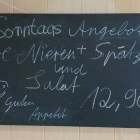 Sonntags Angebot
e Nieren + Spätz
und
Salat
Guten 12,9
Appetit